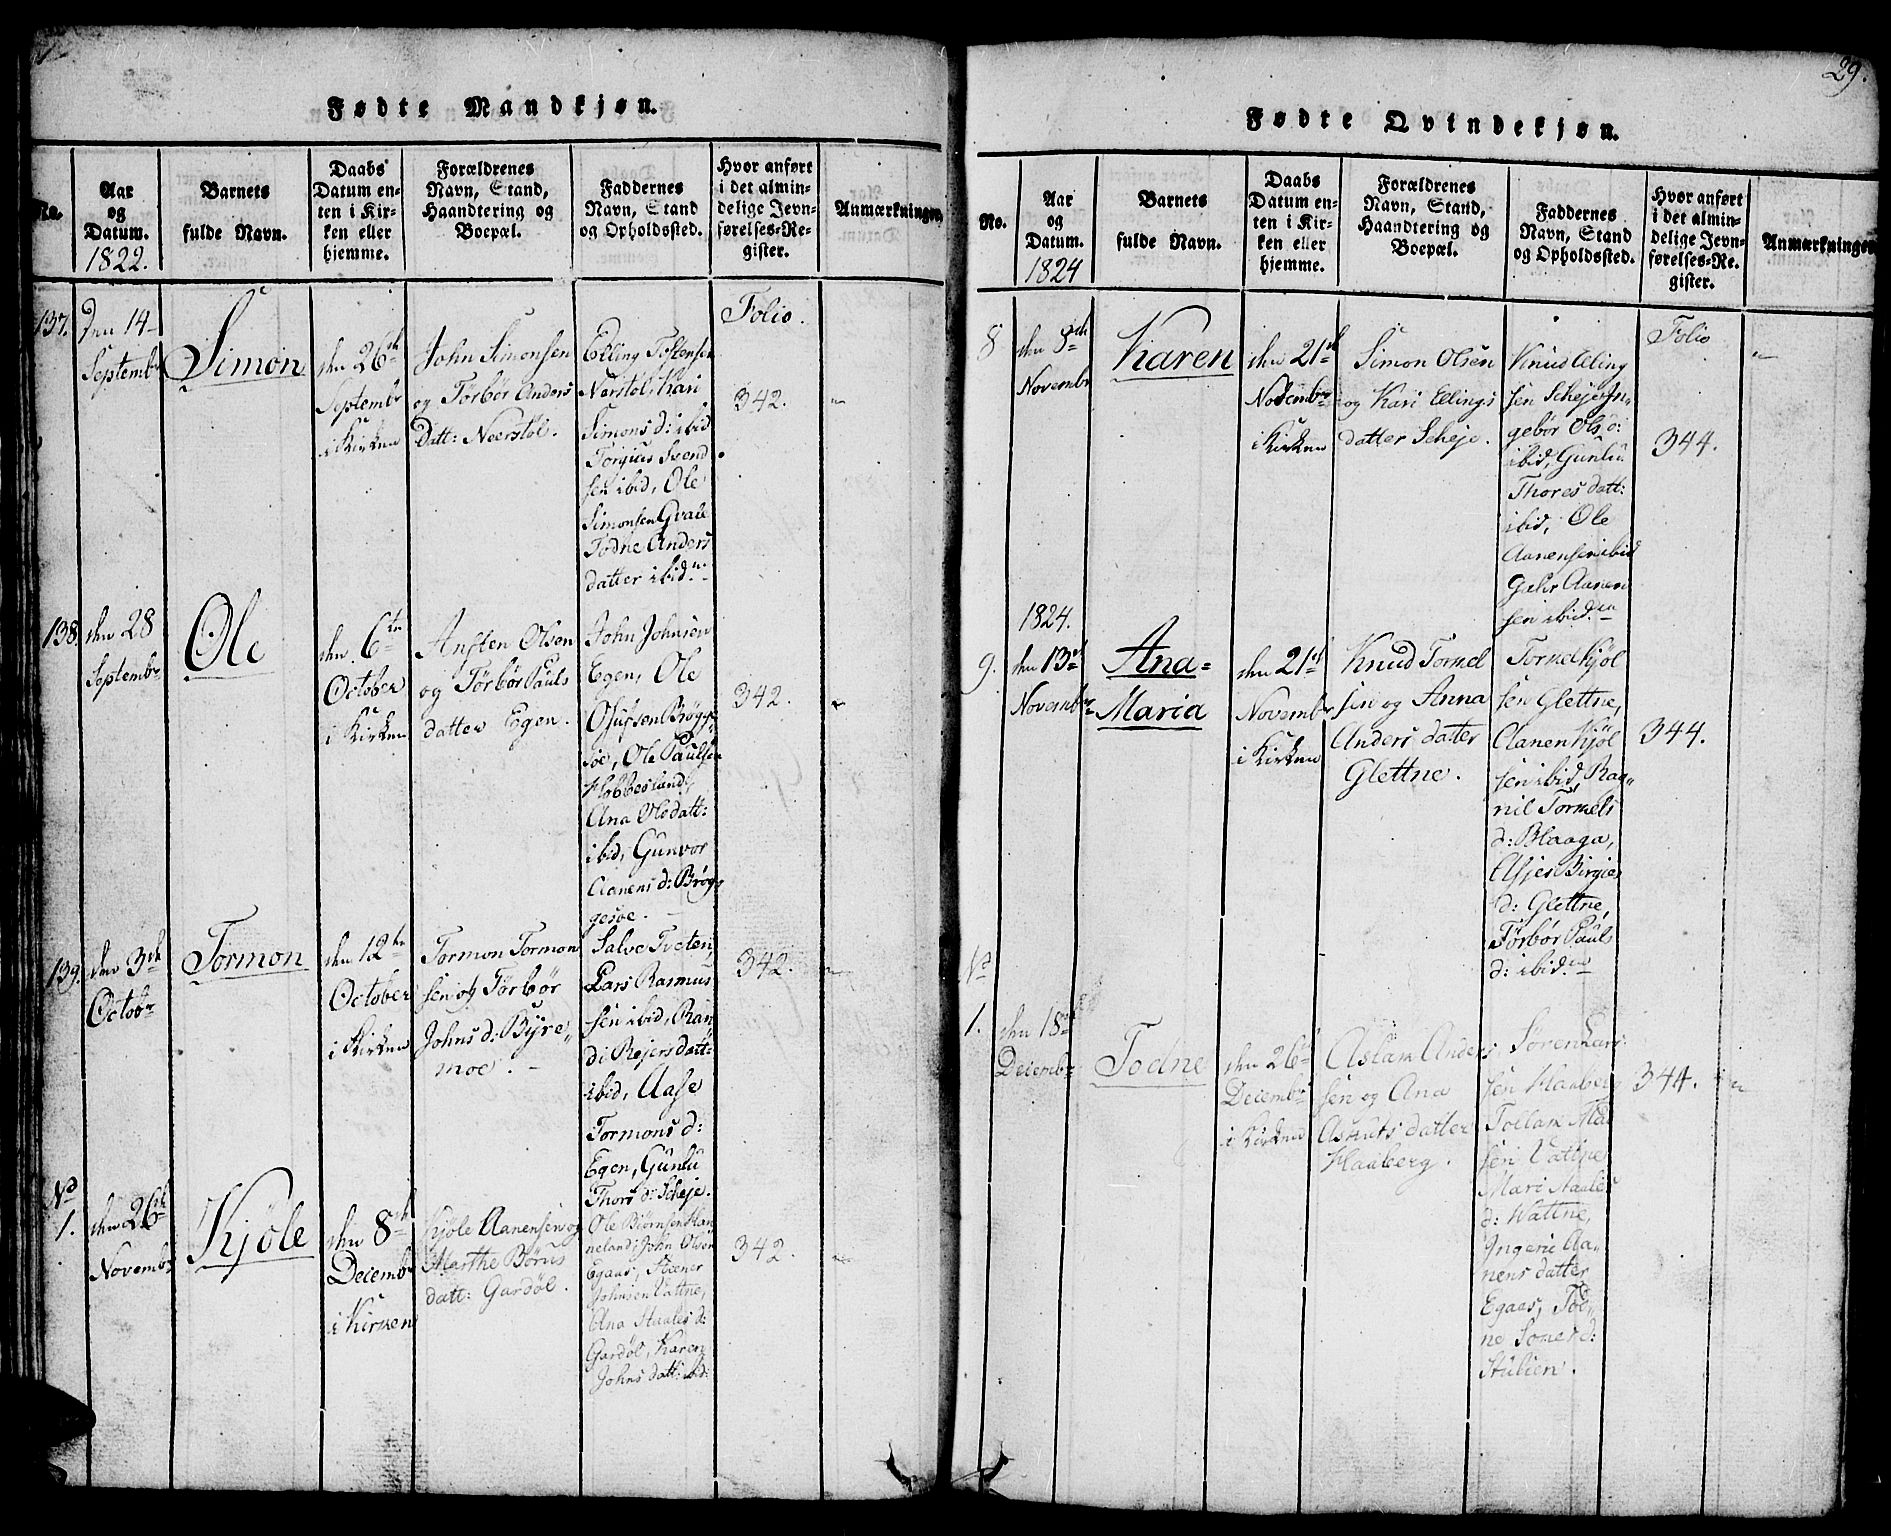 Fødte Mandkjøn.
No.
Aar
og
Datum.
1822.
Barnets
fulde Navn.
Daabs
Datum en-
ten i Kir-
ken eller
hjemme.
Forældrenes
Navn, Stand,
Haandtering og
Boepæl.
Faddernes
Navn, Stand
og Opholdssted.
Hvor anført
i det almin-
delige Jevn-
førelses-Re-
gister.
Anmærkninger.
137.
den 14
Septembr
Simon
den 26th
Septembr
i Kirken
John Simonsen
og Törbör Anders
Datt: Neerstöl.
Elling Tostensen
Nerstöl, Kari
Simons d: ibid
Torgius Svend
sen ibid, Ole
Simonsen Gvale
Todne Anders
datter ibid.
Folio.
342.
138.
den 28
Septembr
Ole
den 6te
October
i Kirken
Ansten Olsen
og Törbör Pauls
datter Egen.
John Johnsen
Egen, Ole
Olufsen Brögge
soe, Ole Paulsen
Hobbesland,
Ana Olsdatt:
ibid, Gunvor
Aanens d: Brög
gesoe.
342.
139.
den 3de
Octobr
Tormon
den 12te
October
i Kirken
Tormon Tormon
sen og Törbör
Johns d: Byre"
moe.
Salve Tveten,
Lars Rasmus
sen ibid, Ran
di Rejersdatt:
ibid, Aase
Tormons d:
Egen, Gunlu
Thors d: Scheje.
342.
Nd
1.
den 26th
Novembr
Kjöle
den 8de
Decembr
i Kirken
Kjöle Aanensen og
Marthe Börus
datt: Gardöl.
Ole Biörnsen Han
neland, John Olsen
Egaas, Steener
Johnsen Vattne,
Ana Staales d:
Gardöl, Karen
Johns datt: ibid:
342.
29.
Fødte Qvindekjøn.
No.
Aar
og
Datum.
1824
Barnets
fulde Navn.
Daabs
Datum en-
ten i Kir-
ken eller
hjemme.
Forældrenes
Navn, Stand,
Haandtering og
Boepæl.
Faddernes
Navn, Stand
og Opholdssted.
Hvor anført
i det almin-
delige Jevn-
førelses-Re-
gister.
Anmærkninger
8
den 8de
Novembr
Karen
den 21de
Novembr
i Kirken
Simon Olsen
og Kari Ellings
datter Scheje.
Knud Elling
sen Scheje, In"
gebör Ols d:
ibid, Gunlu
Thores datt:
ibid, Ole
Aanensen ibid
Aanen
sen ibid.
Folio
344.
1824.
9.
den 13de
Novembr
Ana=
Maria
den 21de
Novembr
i Kirken
Knud Tormod
sen og Anna
Anders datter
Glettne.
Tormel Kjöl
sen Glettne,
Aanen Kjöl
sen ibid, Rag"
nil Tormels
d: Blaaga,
Elsjes Birgies
d: Glettne,
Törbör Pauls
d: ibid.
344.
Nd
1.
den 18de
Decembr
Todne
den 26de
Decembr
i Kirken
Aslak Anders
sen og Ana
Asluts datter
Haaberg.
Sören Lars
sen Haaberg
Tollak Mad
sen Vattne
Mari Aales
d: Wattne,
Ingerie Aa"
nens datter
Egaas, Tod"
ne Somer d:
Stulien.
344.